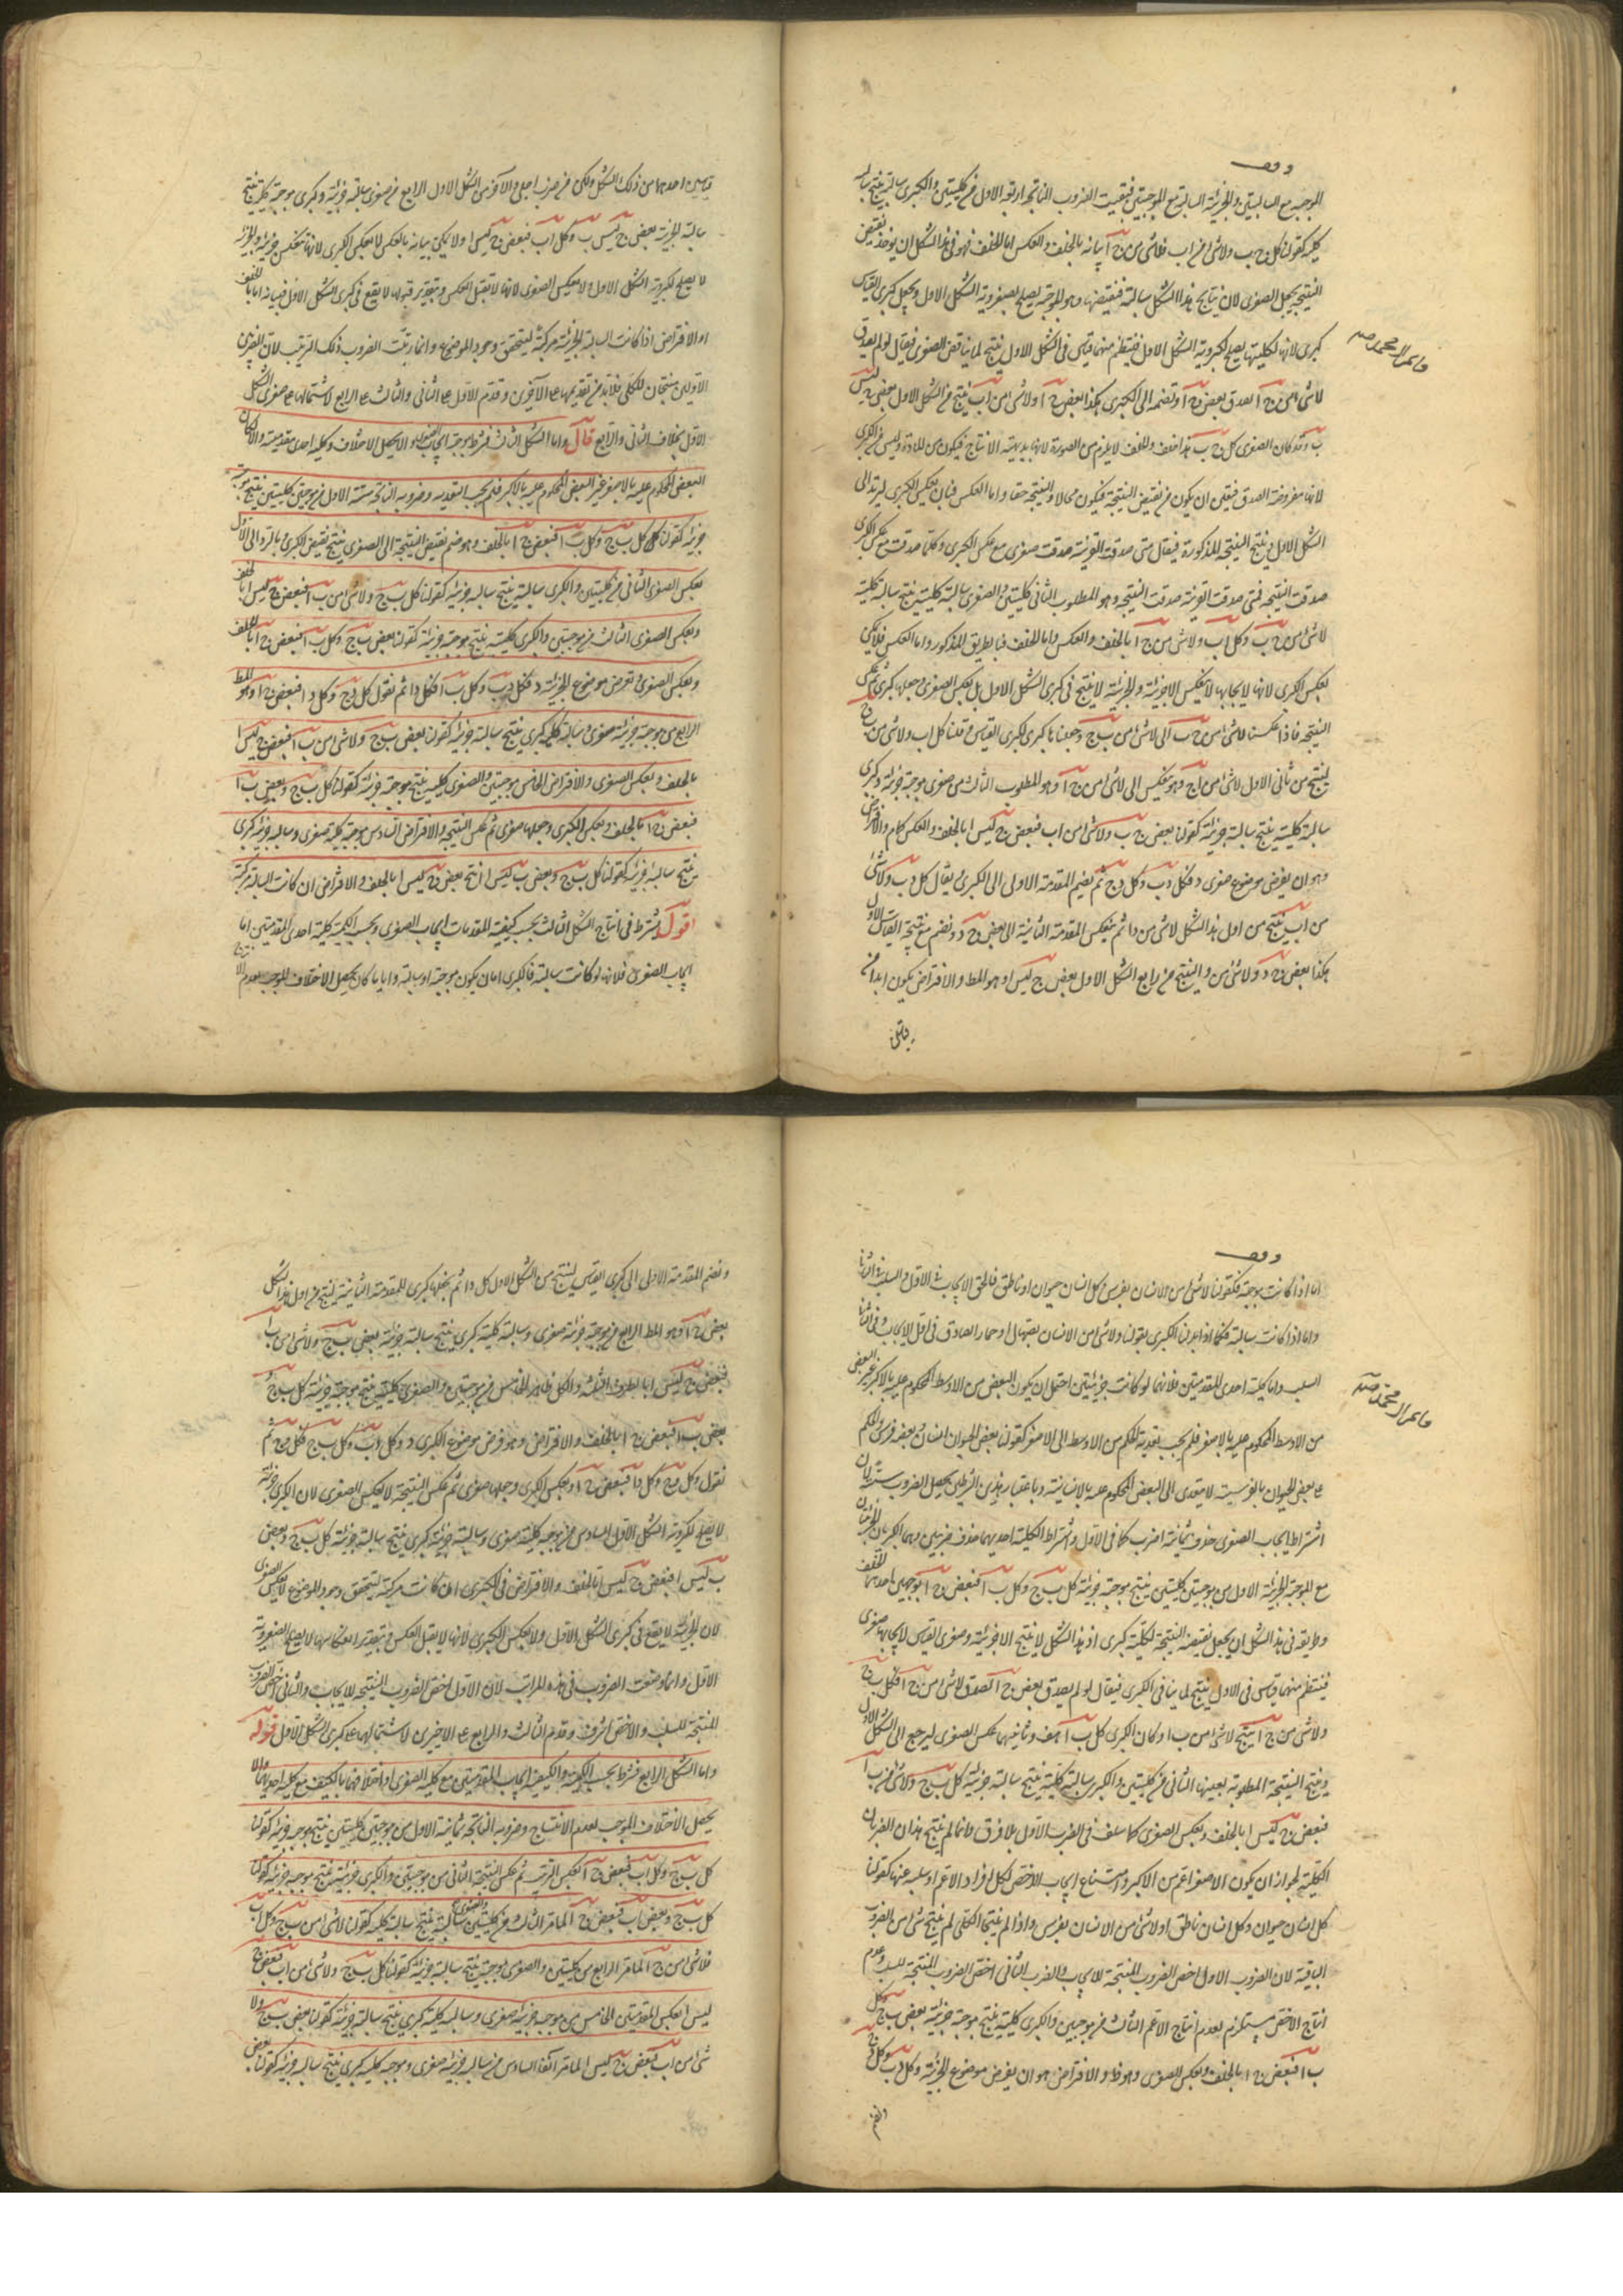 وقف
الموجبة مع السالبتين والجزئية السالبة مع الموجبتين فبقيت الضروب الناتجة اربعة الاول من كليتين والكبرى سالبة ينتج سالبة
كلية كقولنا كل ج ب ولا شئ من ا ب فلا شئ من ج ا بيانه بالخلف والعكس اما الخلف فهو في هذا الشكل ان يؤخذ نقيض
النتيجة ويجعل الصغرى لان نتايج هذا الشكل سالبة فنقيضها وهو الموجبة يصلح لصغروية الشكل الاول ويجعل كبرى القياس
كبرى لانها لكليتها يصلح لكبروية الشكل الاول فينتظم منهما قياس في الشكل الاول ينتج لما يناقض الصغرى فيقال لو لم يصدق
لا شئ من ج ا لصدق بعض ج ا وتضمه الى الكبرى هكذا بعض ج ا ولا شئ من ا ب ينتج من الشكل الاول بعض ج ليس
ب وقد كان الصغرى كل ج ب هذا خلف والخلف لا يلزم من الصورة لانها بديهية الانتاج فيكون من المادة وليس من الكبرى
لانها مفروضة الصدق فتعين ان يكون من نقيض النتيجة فيكون محالا والنتيجة حقا واما العكس فبان يعكس الكبرى ليرتد الى
الشكل الاول وينتج النتيجة المذكورة فيقال متى صدقت القرينة صدقت صغرى مع عكس الكبرى وكلما صدقت مع عكس الكبرى
صدقت النتيجة فمتى صدقت القرينة صدقت النتيجة وهو المطلوب الثاني كليتين والصغرى سالبة كلية ينتج سالبة كلية
لا شئ من ج ب وكل ا ب ولا شئ من ج ا بالخلف والعكس واما الخلف فبالطريق المذكور واما العكس فلا يمكن
بعكس الكبرى لانها لايجابها لا ينعكس الا جزئية والجزئية لا ينتج في كبرى الشكل الاول بل بعكس الصغرى وجعلها كبرى ثم عكس
النتيجة فاذا عكسنا لا شئ من ج ب الى لا شئ من ب ج وجعلناها كبرى لكبرى القياس وقلنا كل ا ب ولا شئ من ب ج
لينتج من ثاني الاول لا شئ من ا ج وهو ينعكس الى لا شئ من ج ا وهو المطلوب الثالث من صغرى موجبة جزئية وكبرى
سالبة كلية ينتج سالبة جزئية كقولنا بعض ج ب ولا شئ من ا ب فبعض ج ليس ا بالخلف والعكس كما مر والافتراض
وهو ان يفرض موضوع صغرى د فكل د ب وكل د ج ثم يضم المقدمة الاولى الى الكبرى يقال كل د ب ولا شئ
من ا ب ينتج من اول هذا الشكل لا شئ من د ا ثم ينعكس المقدمة الثانية الى بعض ج د ونضم مع نتيجة القياس الاول
هكذا بعض ج د ولا شئ من د ا لينتج من رابع الشكل الاول بعض ج ليس ا وهو المط والافتراض يكون ابدا من
قياسين احدهما من ذلك الشكل ولكن من ضرب اجلى والآخر من الشكل الاول الرابع من صغرى سالبة جزئية وكبرى موجبة كلية ينتج
سالبة جزئية بعض ج ليس ب وكل ا ب فبعض ج ليس ا ولا يمكن بيانه بالعكس لا بعكس الكبرى لانها تنعكس جزئية والجزئية
لا يصلح لكبروية الشكل الاول ولا بعكس الصغرى لانها لا تقبل العكس وبتقدير قبولها لا يقع في كبرى الشكل الاول فبيانه اما بالخلف
او الافتراض اذا كانت السالبة الجزئية مركبة ليتحقق وجود الموضوع وانما رتبت الضروب ذلك الترتيب لان الضربين
الاولين منتجان للكلي فلا بد من تقديمهما على الآخرين وقدم الاول على الثاني والثالث على الرابع لاشتمالها على صغرى الشكل
الاول بخلاف الثاني والرابع قال واما الشكل الثالث فشرط موجبة ايجاب الصغرى والا يحصل الاختلاف وكلية احدى مقدمتيه والا لكان
البعض المحكوم عليه بالاصغر غير البعض المحكوم عليه بالاكبر فلم يجب التعدية وضروبه الناتجة ستة الاول من موجبتين كليتين ينتج موجبة
جزئية كقولنا كل ب ج وكل ب ا فبعض ج ا بالخلف وهو ضم نقيض النتيجة الى الصغرى لينتج نقيض الكبرى بالرد الى الاول
بعكس الصغرى الثاني من كليتين والكبرى سالبة ينتج سالبة جزئية كقولنا كل ب ج ولا شئ من ب ا فبعض ج ليس ا بالخلف
وبعكس الصغرى الثالث من موجبتين والكبرى كلية ينتج موجبة جزئية كقولنا بعض ب ج وكل ب ا فبعض ج ا بالخلف
وبعكس الصغرى ونفرض موضوع الجزئية د فكل د ب وكل ب ا فكل د ا ثم نقول كل د ج وكل د ا فبعض ج ا وهو المط
الرابع من موجبة جزئية صغرى وسالبة كلية كبرى ينتج سالبة جزئية كقولنا بعض ب ج ولا شئ من ب ا فبعض ج ليس ا
بالخلف وبعكس الصغرى والافتراض الخامس من موجبتين والصغرى كلية ينتج موجبة جزئية كقولنا كل ب ج وبعض ب ا
فبعض ج ا بالخلف وبعكس الكبرى وجعلها صغرى ثم عكس النتيجة والافتراض السادس من موجبة كلية صغرى وسالبة جزئية كبرى
ينتج سالبة جزئية كقولنا كل ب ج وبعض ب ليس ا انتج بعض ج ليس ا بالخلف والافتراض ان كانت السالبة مركبة
اقول يشترط في انتاج الشكل الثالث بحسب كيفية المقدمات ايجاب الصغرى وبحسب الكمية كلية احدى المقدمتين اما
ايجاب الصغرى فلانها لو كانت سالبة فالكبرى اما ان يكون موجبة او سالبة وايا ما كان يحصل الاختلاف الموجب لعدم الانتاج
وقف
اما اذا كانت موجبة فكقولنا لا شئ من الانسان بفرس وكل انسان حيوان او ناطق فالحق الايجاب في الاول والسلب في الثاني
واما اذا كانت سالبة فكما اذا بدلنا الكبرى بقولنا ولا شئ من الانسان بصهال او حمار الصادق في الاول الايجاب وفي الثاني
السلب واما كلية احدى المقدمتين فلانهما لو كانت جزئيتين احتمل ان يكون البعض من الاوسط المحكوم عليه بالاكبر غير البعض
من الاوسط المحكوم عليه بالاصغر فلم يجب تعدية الحكم من الاوسط الى الاصغر كقولنا بعض الحيوان انسان وبعضه فرس والحكم
على بعض الحيوان بالفرسية لا يتعدى الى البعض المحكوم عليه بالانسانية وباعتبار هذين الشرطين يحصل الضروب ستة لان
اشتراط ايجاب الصغرى حذف ثمانية اضرب كما في الاول واشتراط الكلية احديهما حذف ضربين وهما الكبريان الجزئيتان
مع الموجبة الجزئية الاول من موجبتين كليتين ينتج موجبة جزئية كل ب ج وكل ب ا فبعض ج ا بوجهين احدهما الخلف
وطريقه في هذا الشكل ان يجعل نقيض النتيجة لكلية كبرى اذ هذا الشكل لا ينتج الا جزئية وصغرى القياس لايجابها صغرى
فينتظم منهما قياس في الاول ينتج لما ينافي الكبرى فيقال لو لم يصدق بعض ج ا لصدق لا شئ من ج ا فكل ب ج
ولا شئ من ج ا ينتج لا شئ من ب ا وكان الكبرى كل ب ا هف وثانيهما عكس الصغرى ليرجع الى الشكل الاول
وينتج النتيجة المطلوبة بعينها الثاني من كليتين والكبرى سالبة كلية ينتج سالبة جزئية كل ب ج ولا شئ من ب ا
فبعض ج ليس ا بالخلف وبعكس الصغرى كما سلف في الضرب الاول بلا فرق وانما لم ينتج هذان الضربان
الكلية لجواز ان يكون الاصغر اعم من الاكبر وامتناع ايجاب الاخص لكل افراد الاعم او سلبه عنها كقولنا
كل انسان حيوان وكل انسان ناطق او لا شئ من الانسان بفرس واذا لم ينتجا الكلي لم ينتج شئ من الضروب
الباقية لان الضرب الاول اخص الضروب المنتجة للايجاب والضرب الثاني اخص الضروب المنتجة للسلب وعدم
انتاج الاخص يستلزم لعدم انتاج الاعم الثالث من موجبتين والكبرى كلية ينتج موجبة جزئية بعض ب ج وكل
ب ا فبعض ج ا بالخلف وبعكس الصغرى وهو ظ والافتراض هو ان يفرض موضوع الجزئية د وكل د ب وكل د ج
ونضم المقدمة الاولى الى كبرى القياس لينتج من الشكل الاول كل د ا ثم نجعلها كبرى للمقدمة الثانية لينتج من اول هذا الشكل
بعض ج ا وهو المط الرابع من موجبة جزئية صغرى وسالبة كلية كبرى ينتج سالبة جزئية بعض ب ج ولا شئ من ب ا
فبعض ج ليس ا بالطرق الثلثة والكل ظاهر الخامس من موجبتين والصغرى كلية ينتج موجبة جزئية كل ب ج و
بعض ب ا فبعض ج ا بالخلف والافتراض وهو فرض موضوع الكبرى د وكل د ب وكل ب ج فكل د ج ثم
نقول وكل د ج وكل د ا فبعض ج ا وبعكس الكبرى وجعلها صغرى ثم عكس النتيجة لا بعكس الصغرى لان الكبرى جزئية
لا يصلح لكبروية الشكل الاول السادس من موجبة كلية صغرى وسالبة جزئية كبرى ينتج سالبة جزئية كل ب ج وبعض
ب ليس ا فبعض ج ليس ا بالخلف والافتراض في الكبرى ان كانت مركبة ليتحقق وجود الموضوع لا بعكس الصغرى
لان الجزئية لا يقع في كبرى الشكل الاول ولا بعكس الكبرى لانها لا يقبل العكس وبتقدير انعكاسها لا يصلح لصغروية
الاول وانما وضعت الضروب في هذه المراتب لان الاول اخص الضروب المنتجة للايجاب والثاني اخص الضروب
المنتجة للسلب والاخص اشرف وقدم الثالث والرابع على الاخيرين لاشتمالهما على كبرى الشكل الاول قوله
واما الشكل الرابع فشرط بحسب الكمية والكيفية ايجاب المقدمتين مع كلية الصغرى او اختلافهما بالكيف مع كلية احديهما والا
يحصل الاختلاف الموجب لعدم الانتاج وضروبه الناتجة ثمانية الاول من موجبتين كليتين ينتج موجبة جزئية كقولنا
كل ب ج وكل ا ب فبعض ج ا بعكس الترتيب ثم عكس النتيجة الثاني من موجبتين والكبرى جزئية ينتج موجبة جزئية كقولنا
كل ب ج وبعض ا ب فبعض ج ا لما مر الثالث من كليتين والصغرى سالبة ينتج سالبة كلية كقولنا لا شئ من ب ج وكل ا ب
فلا شئ من ج ا لما مر الرابع من كليتين والصغرى موجبة ينتج سالبة جزئية كقولنا كل ب ج ولا شئ من ا ب فبعض ج
ليس ا بعكس المقدمتين الخامس من موجبة جزئية صغرى وسالبة كلية كبرى ينتج سالبة جزئية كقولنا بعض ب ج ولا
شئ من ا ب فبعض ج ليس ا لما مر آنفا السادس من سالبة جزئية صغرى وموجبة كلية كبرى ينتج سالبة جزئية كقولنا بعض